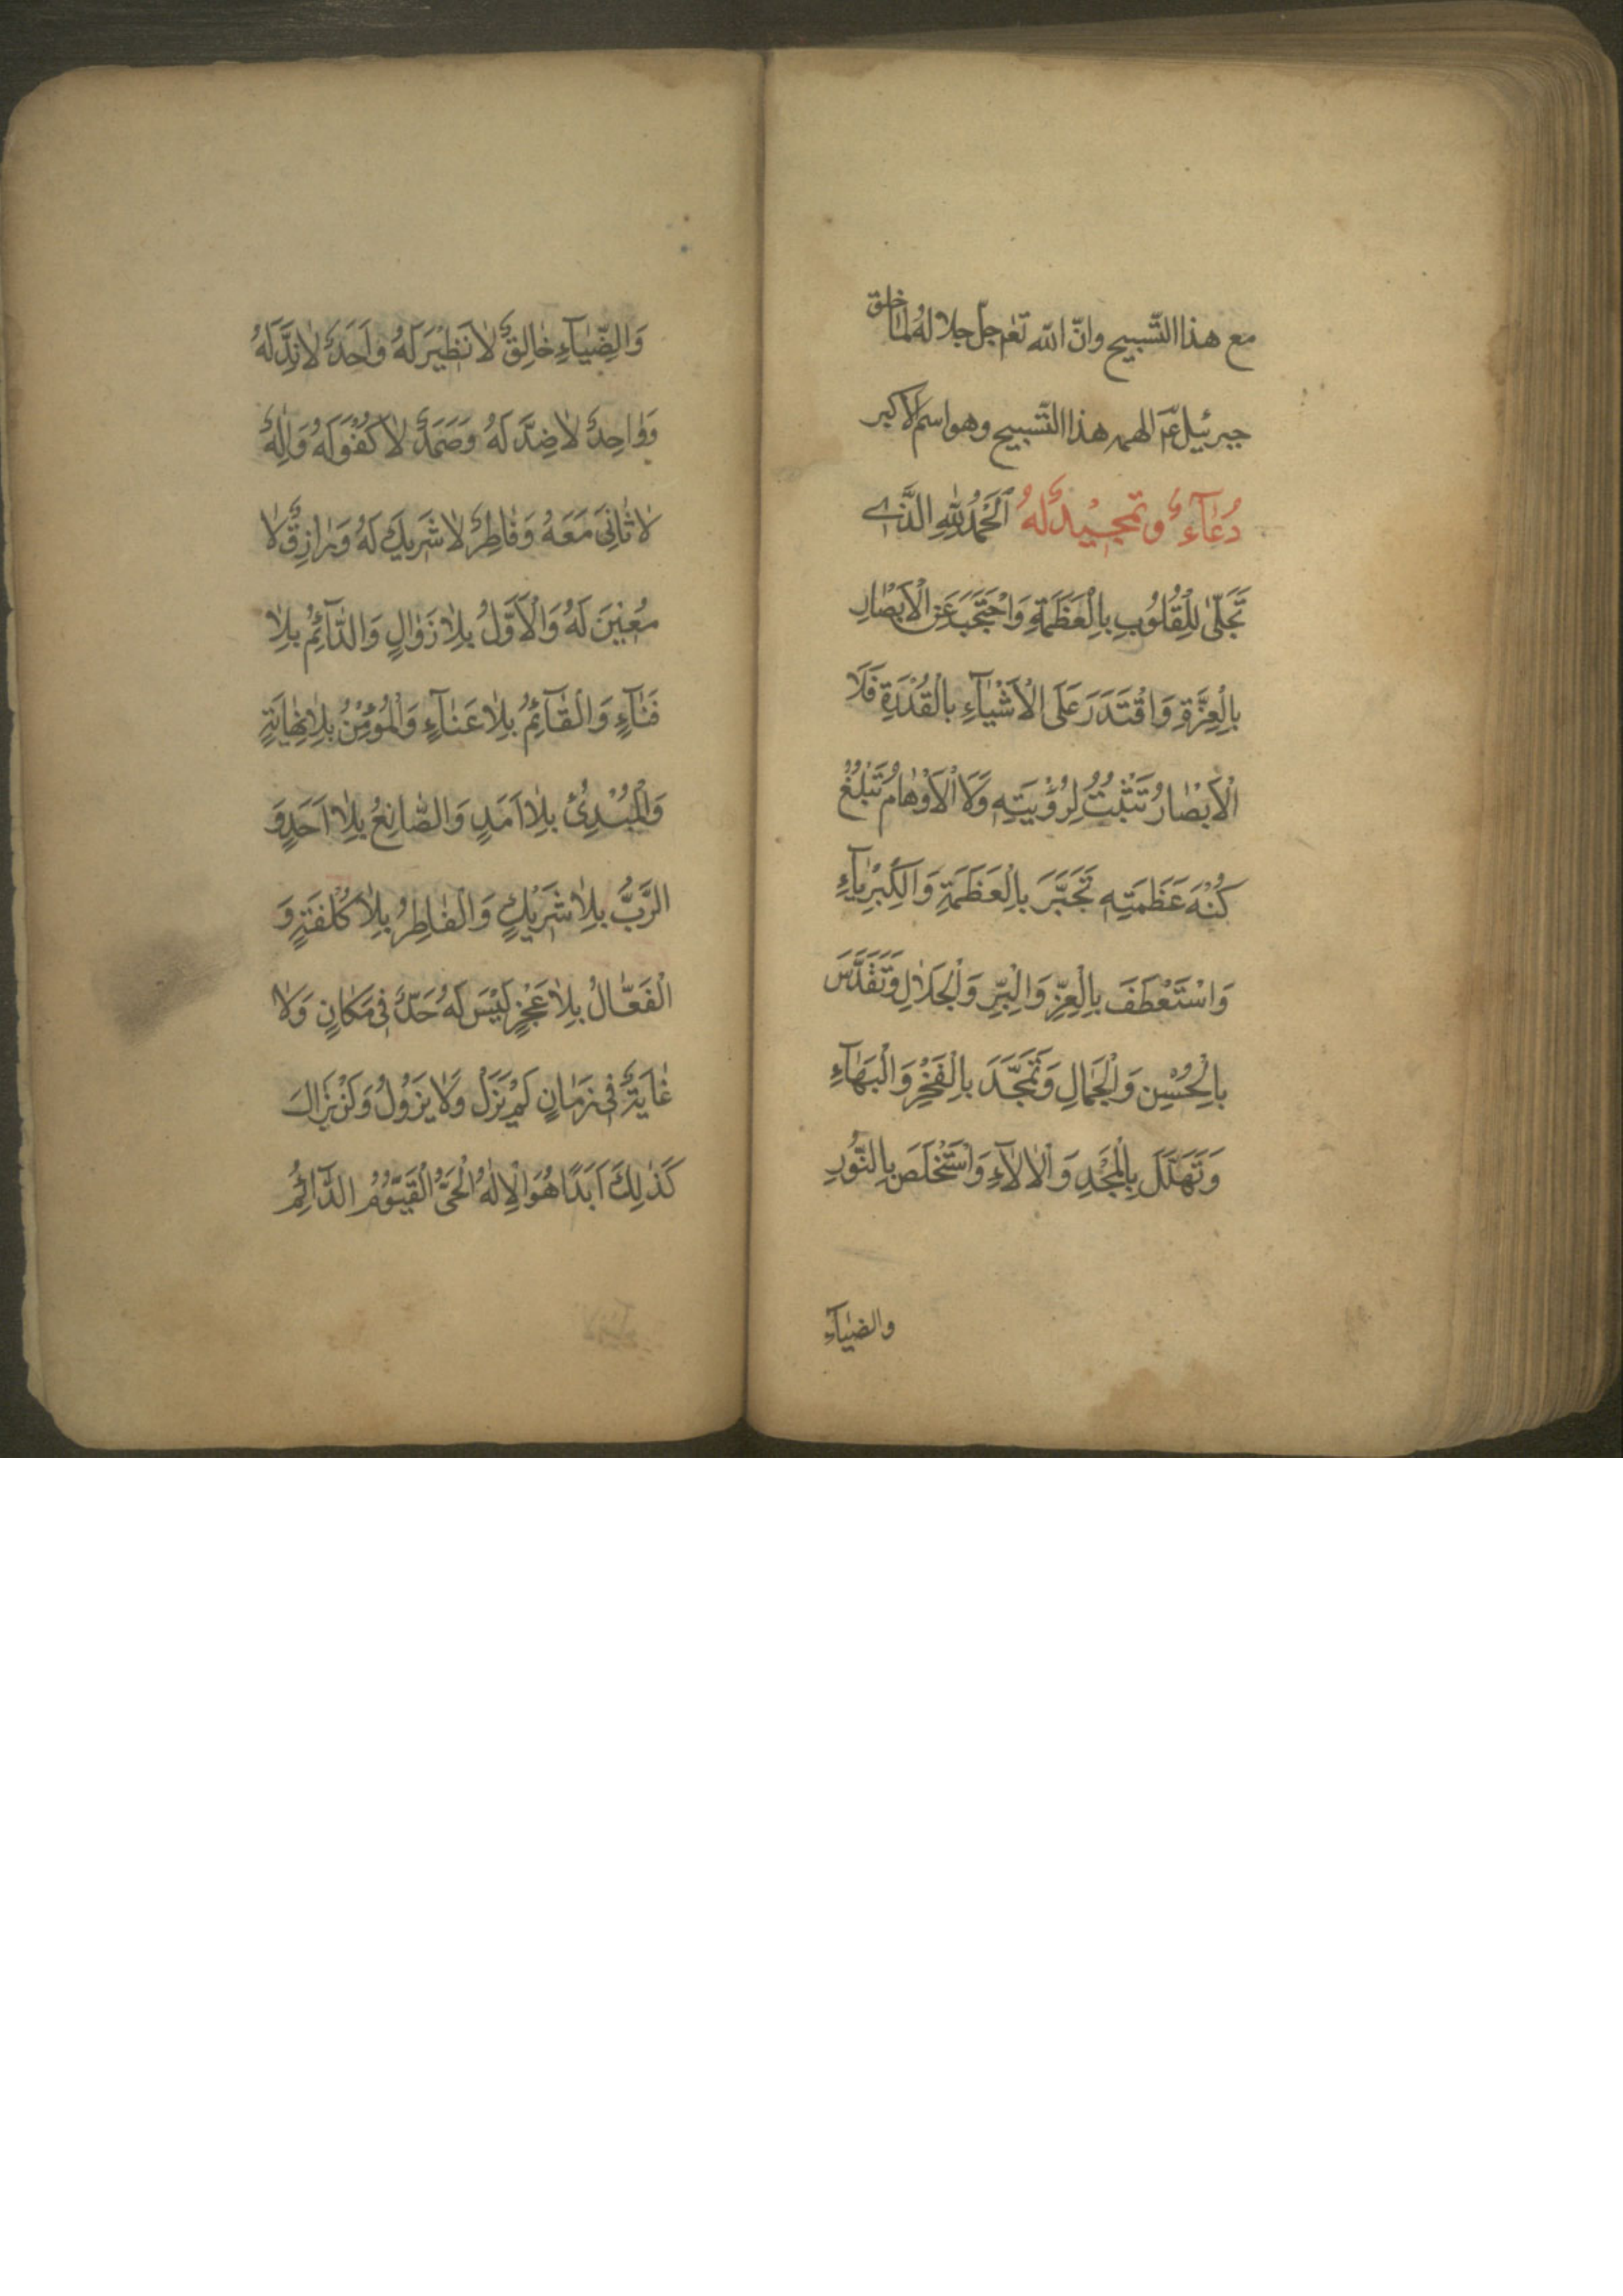 مع هذا التّسبيح وانّ الله تعٰم جلّ جلاله لمّا خلق
جبرئيل عم الهمه هذا التّسبيح وهو اسم الاكبر
دُعٰآءٌ وتمجيْدٌ لهُ اَلْحَمْدُ لِلّٰهِ الَّذي
تَجَلّىٰ لِلْقُلُوُبِ بِالْعَظَمَةِ وَاحْتَجَبَ عَنِ الْاَبْصٰارِ
بِالْعِزَّةِ وَاقْتَدَرَ عَلَى الْاَشْيٰآءِ بِالْقُدْرَةِ فَلَا
الْاَبْصٰارُ تَثْبُتُ لِرُؤْيَتِهِ وَلَا الْاَوْهٰامُ تَبْلُغُ
كُنْهَ عَظَمَتِهِ تَجَبَّرَ بِالْعَظَمَةِ وَالْكِبْرِيٰآءِ
وَاسْتَعْطَفَ بِالْعِزِّ وَالْبِرِّ وَالْجَلَالِ وَتَقَدَّسَ
بِالْحُسْنِ وَالْجَمٰالِ وَتَمَجَّدَ بِالْفَخْرِ وَالْبَهٰآءِ
وَتَهَلَّلَ بِالْمَجْدِ وَالْاٰلَآءِ وَاسْتَخْلَصَ بِالنُّورِ
والضيٰآءِ
وَالضِّيٰآءِ خٰالِقٌ لاٰ نَظيْرَ لَهُ وَاَحَدٌ لاٰ نِدَّ لَهُ
وَوٰاحِدٌ لاٰ ضِدَّ لَهُ وَصَمَدٌ لاٰ كُفْوَ لَهُ وَاِلٰهٌ
لاٰ ثٰانِيَ مَعَهُ وَفٰاطِرٌ لاٰ شَريكَ لَهُ وَرٰازِقٌ لاٰ
مُعيْنَ لَهُ وَالْاَوَّلُ بِلاٰ زَوٰالٍ وَالدّٰآئِمُ بِلاٰ
فَنٰآءٍ وَالْقٰآئِمُ بِلاٰ عَنٰآءٍ وَالْمُؤْمِنُ بِلاٰ نِهٰايَةٍ
وَالْمُبْدِئُ بِلاٰ اَمَدٍ وَالصّٰانِعُ بِلاٰ اَحَدٍ وَ
الرَّبُّ بِلاٰ شَريْكٍ وَالْفٰاطِرُ بِلاٰ كُلْفَةٍ وَ
الْفَعّٰالُ بِلاٰ عَجْزٍ لَيْسَ لَهُ حَدٌّ في مَكٰانٍ وَلاٰ
غٰايَةٌ في زَمٰانٍ لَمْ يَزَلْ وَلاٰ يَزُوْلُ وَلَنْ يَزٰالَ
كَذٰلِكَ اَبَدًا هُوَ الْاِلٰهُ الْحَيُّ الْقَيُّوْمُ الدّٰآئِمُ